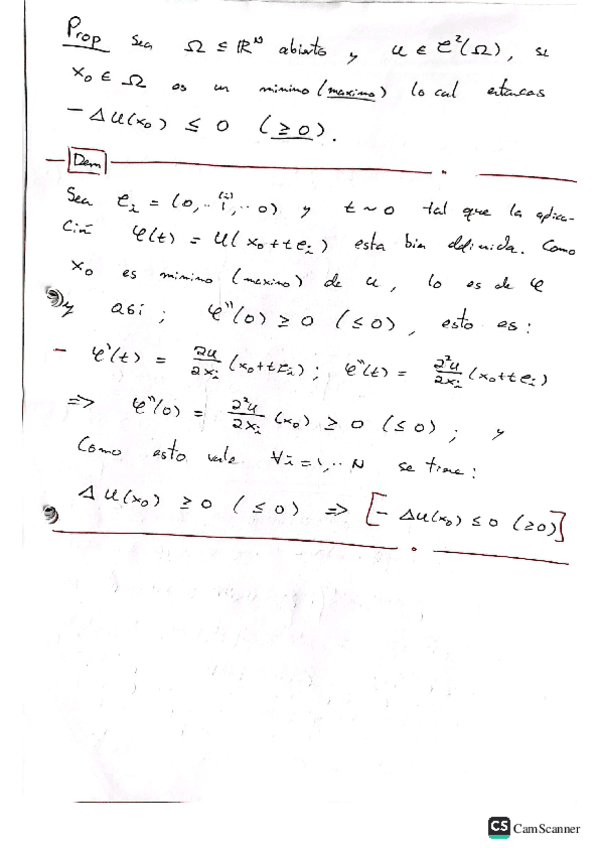 Prop Sea Ω ⊆ ℝᴺ abierto y u ∈ C²(Ω), si
x₀ ∈ Ω es un minimo (maximo) local entonces
- Δu(x₀) ≤ 0 (≥ 0).
Dem
Sea eᵢ = (0, .. 1⁽ⁱ⁾, .. 0) y t ~ 0 tal que la aplica-
ción φ(t) = u(x₀ + t eᵢ) esta bien definida. Como
x₀ es minimo (maximo) de u, lo es de φ
y asi ; φ''(0) ≥ 0 (≤ 0), esto es :
- φ'(t) = ∂u/∂xᵢ (x₀ + t eᵢ) ; φ''(t) = ∂²u/∂xᵢ (x₀ + t eᵢ)
=> φ''(0) = ∂²u/∂xᵢ (x₀) ≥ 0 (≤ 0) ; y
Como esto vale ∀i = 1, .. N se tiene :
Δu(x₀) ≥ 0 (≤ 0) => [- Δu(x₀) ≤ 0 (≥ 0)]
CS CamScanner